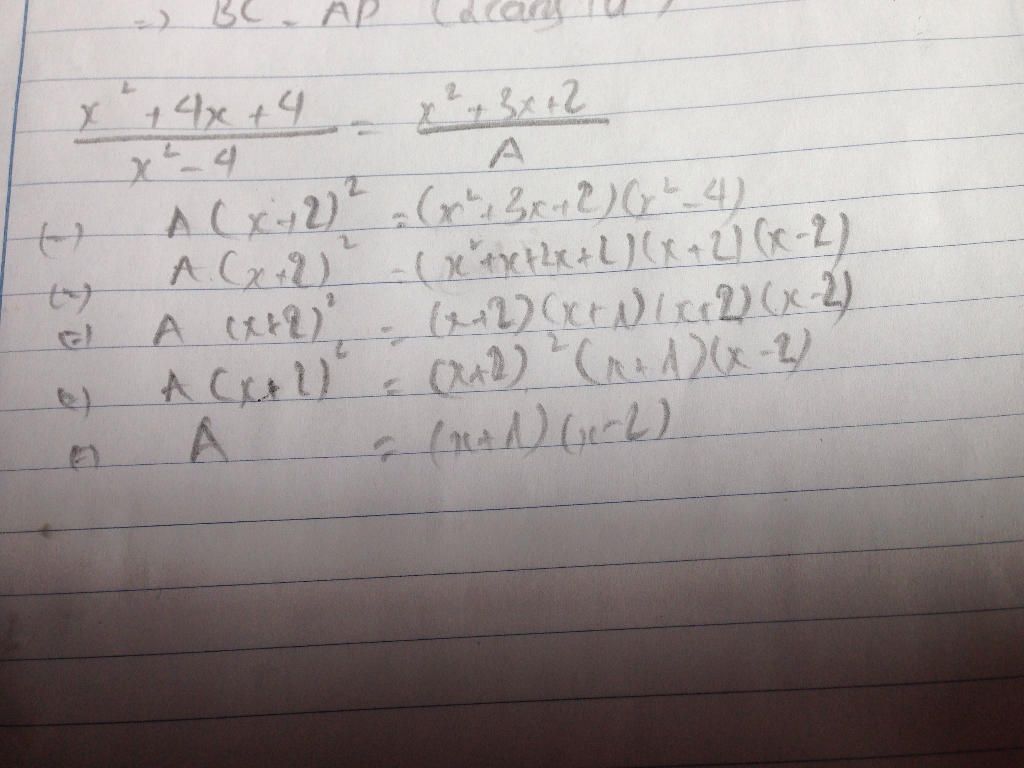 =) BC = AD
x² + 4x + 4 / x² - 4 = x² + 3x + 2 / A
(=) A (x+2)² = (x² + 3x + 2)(x² - 4)
(=) A (x+2)² = (x² + x + 2x + 2)(x+2)(x-2)
(=) A (x+2)² = (x+2)(x+1)(x+2)(x-2)
(=) A (x+2)² = (x+2)² (x+1)(x-2)
(=) A = (x+1)(x-2)